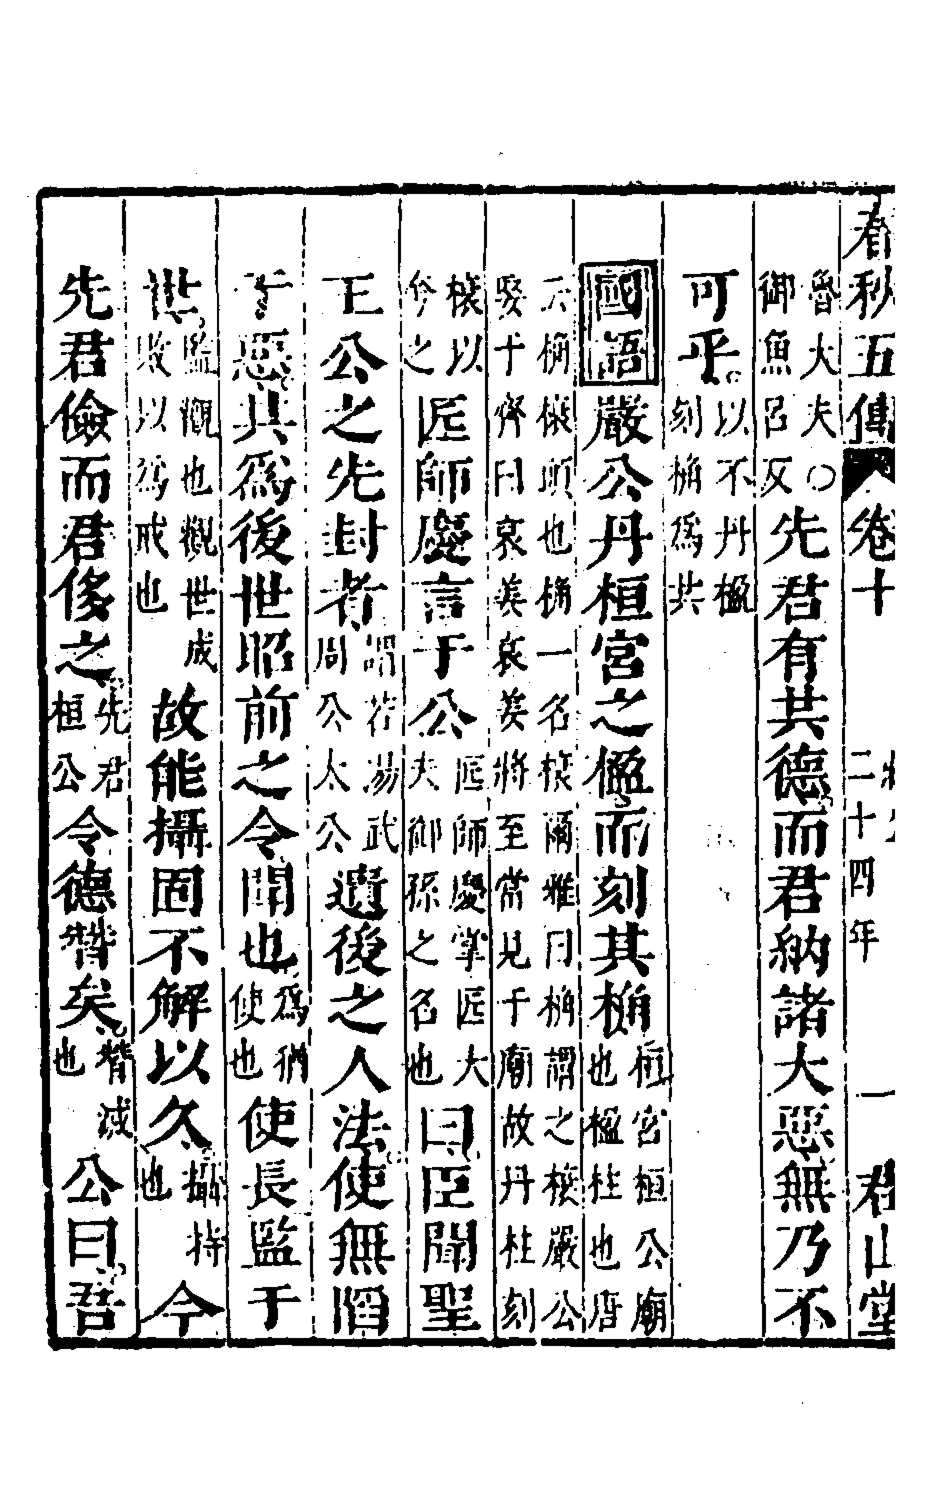 春秋五傳 卷十 二十四年 一 君山堂
魯大夫○御魚呂反先君有共德而君納諸大惡無乃不
可乎以不丹楹刻桷爲共
國語嚴公丹桓宮之楹而刻其桷桓宮桓公廟也楹柱也唐
云桷榱頭也桷一名榱爾雅曰桷謂之榱嚴公娶于齊曰哀姜哀姜將至當見于廟故丹柱刻
榱以夸之匠師慶言于公匠師慶掌匠大夫御孫之名也曰臣聞聖
王公之先封者謂若湯武周公太公遺後之人法使無陷
于惡其爲後世昭前之令聞也爲猶使也使長監于
世監觀也觀世成敗以爲戒也故能攝固不解以久攝持也今
先君儉而君侈之先君桓公令德替矣替滅也公曰吾